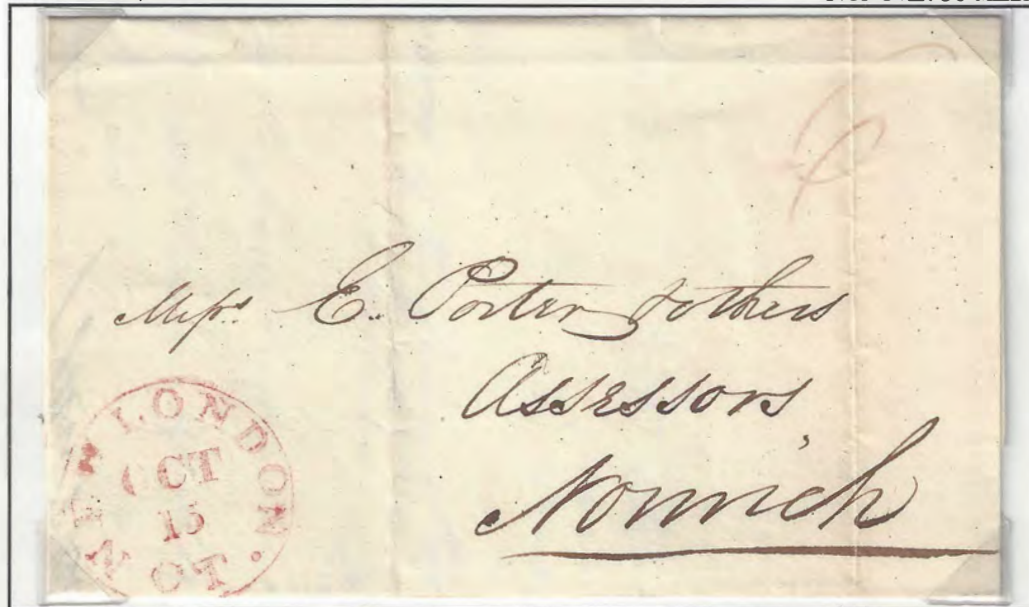 6
Mess.rs E. Porter & others
Assessors,
Norwich
NEW LONDON.
OCT
15
CT.